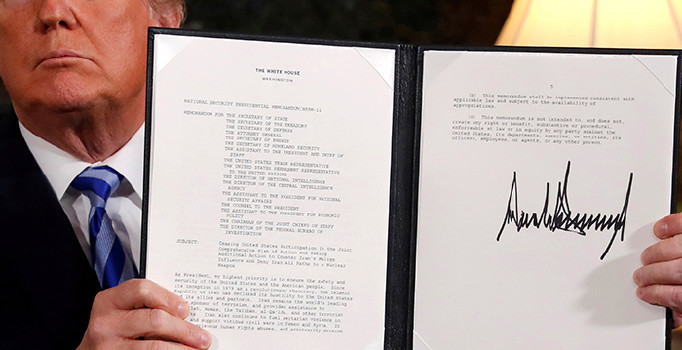 THE WHITE HOUSE
WASHINGTON
NATIONAL SECURITY PRESIDENTIAL MEMORANDUM/NSPM-11
MEMORANDUM FOR THE SECRETARY OF STATE
THE SECRETARY OF THE TREASURY
THE SECRETARY OF DEFENSE
THE ATTORNEY GENERAL
THE SECRETARY OF ENERGY
THE SECRETARY OF HOMELAND SECURITY
THE ASSISTANT TO THE PRESIDENT AND CHIEF OF
STAFF
THE UNITED STATES TRADE REPRESENTATIVE
THE UNITED STATES PERMANENT REPRESENTATIVE
TO THE UNITED NATIONS
THE DIRECTOR OF NATIONAL INTELLIGENCE
THE DIRECTOR OF THE CENTRAL INTELLIGENCE
AGENCY
THE ASSISTANT TO THE PRESIDENT FOR NATIONAL
SECURITY AFFAIRS
THE COUNSEL TO THE PRESIDENT
THE ASSISTANT TO THE PRESIDENT FOR ECONOMIC
POLICY
THE CHAIRMAN OF THE JOINT CHIEFS OF STAFF
THE DIRECTOR OF THE FEDERAL BUREAU OF
INVESTIGATION
SUBJECT: Ceasing United States Participation in the Joint
Comprehensive Plan of Action and Taking
Additional Action to Counter Iran's Malign
Influence and Deny Iran All Paths to a Nuclear
Weapon
As President, my highest priority is to ensure the safety and
security of the United States and the American people. Since
its inception in 1979 as a revolutionary theocracy, the Islamic
Republic of Iran has declared its hostility to the United States
its allies and partners. Iran remains the world's leading
sponsor of terrorism, and provides assistance to
Hamas, the Taliban, al-Qa'ida, and other terrorist
Iran also continues to fuel sectarian violence in
and support vicious civil wars in Yemen and Syria. It
grievous human rights abuses, and arbitrarily
5
(b) This memorandum shall be implemented consistent with
applicable law and subject to the availability of
appropriations.
(c) This memorandum is not intended to, and does not,
create any right or benefit, substantive or procedural,
enforceable at law or in equity by any party against the
United States, its departments, agencies, or entities, its
officers, employees, or agents, or any other person.